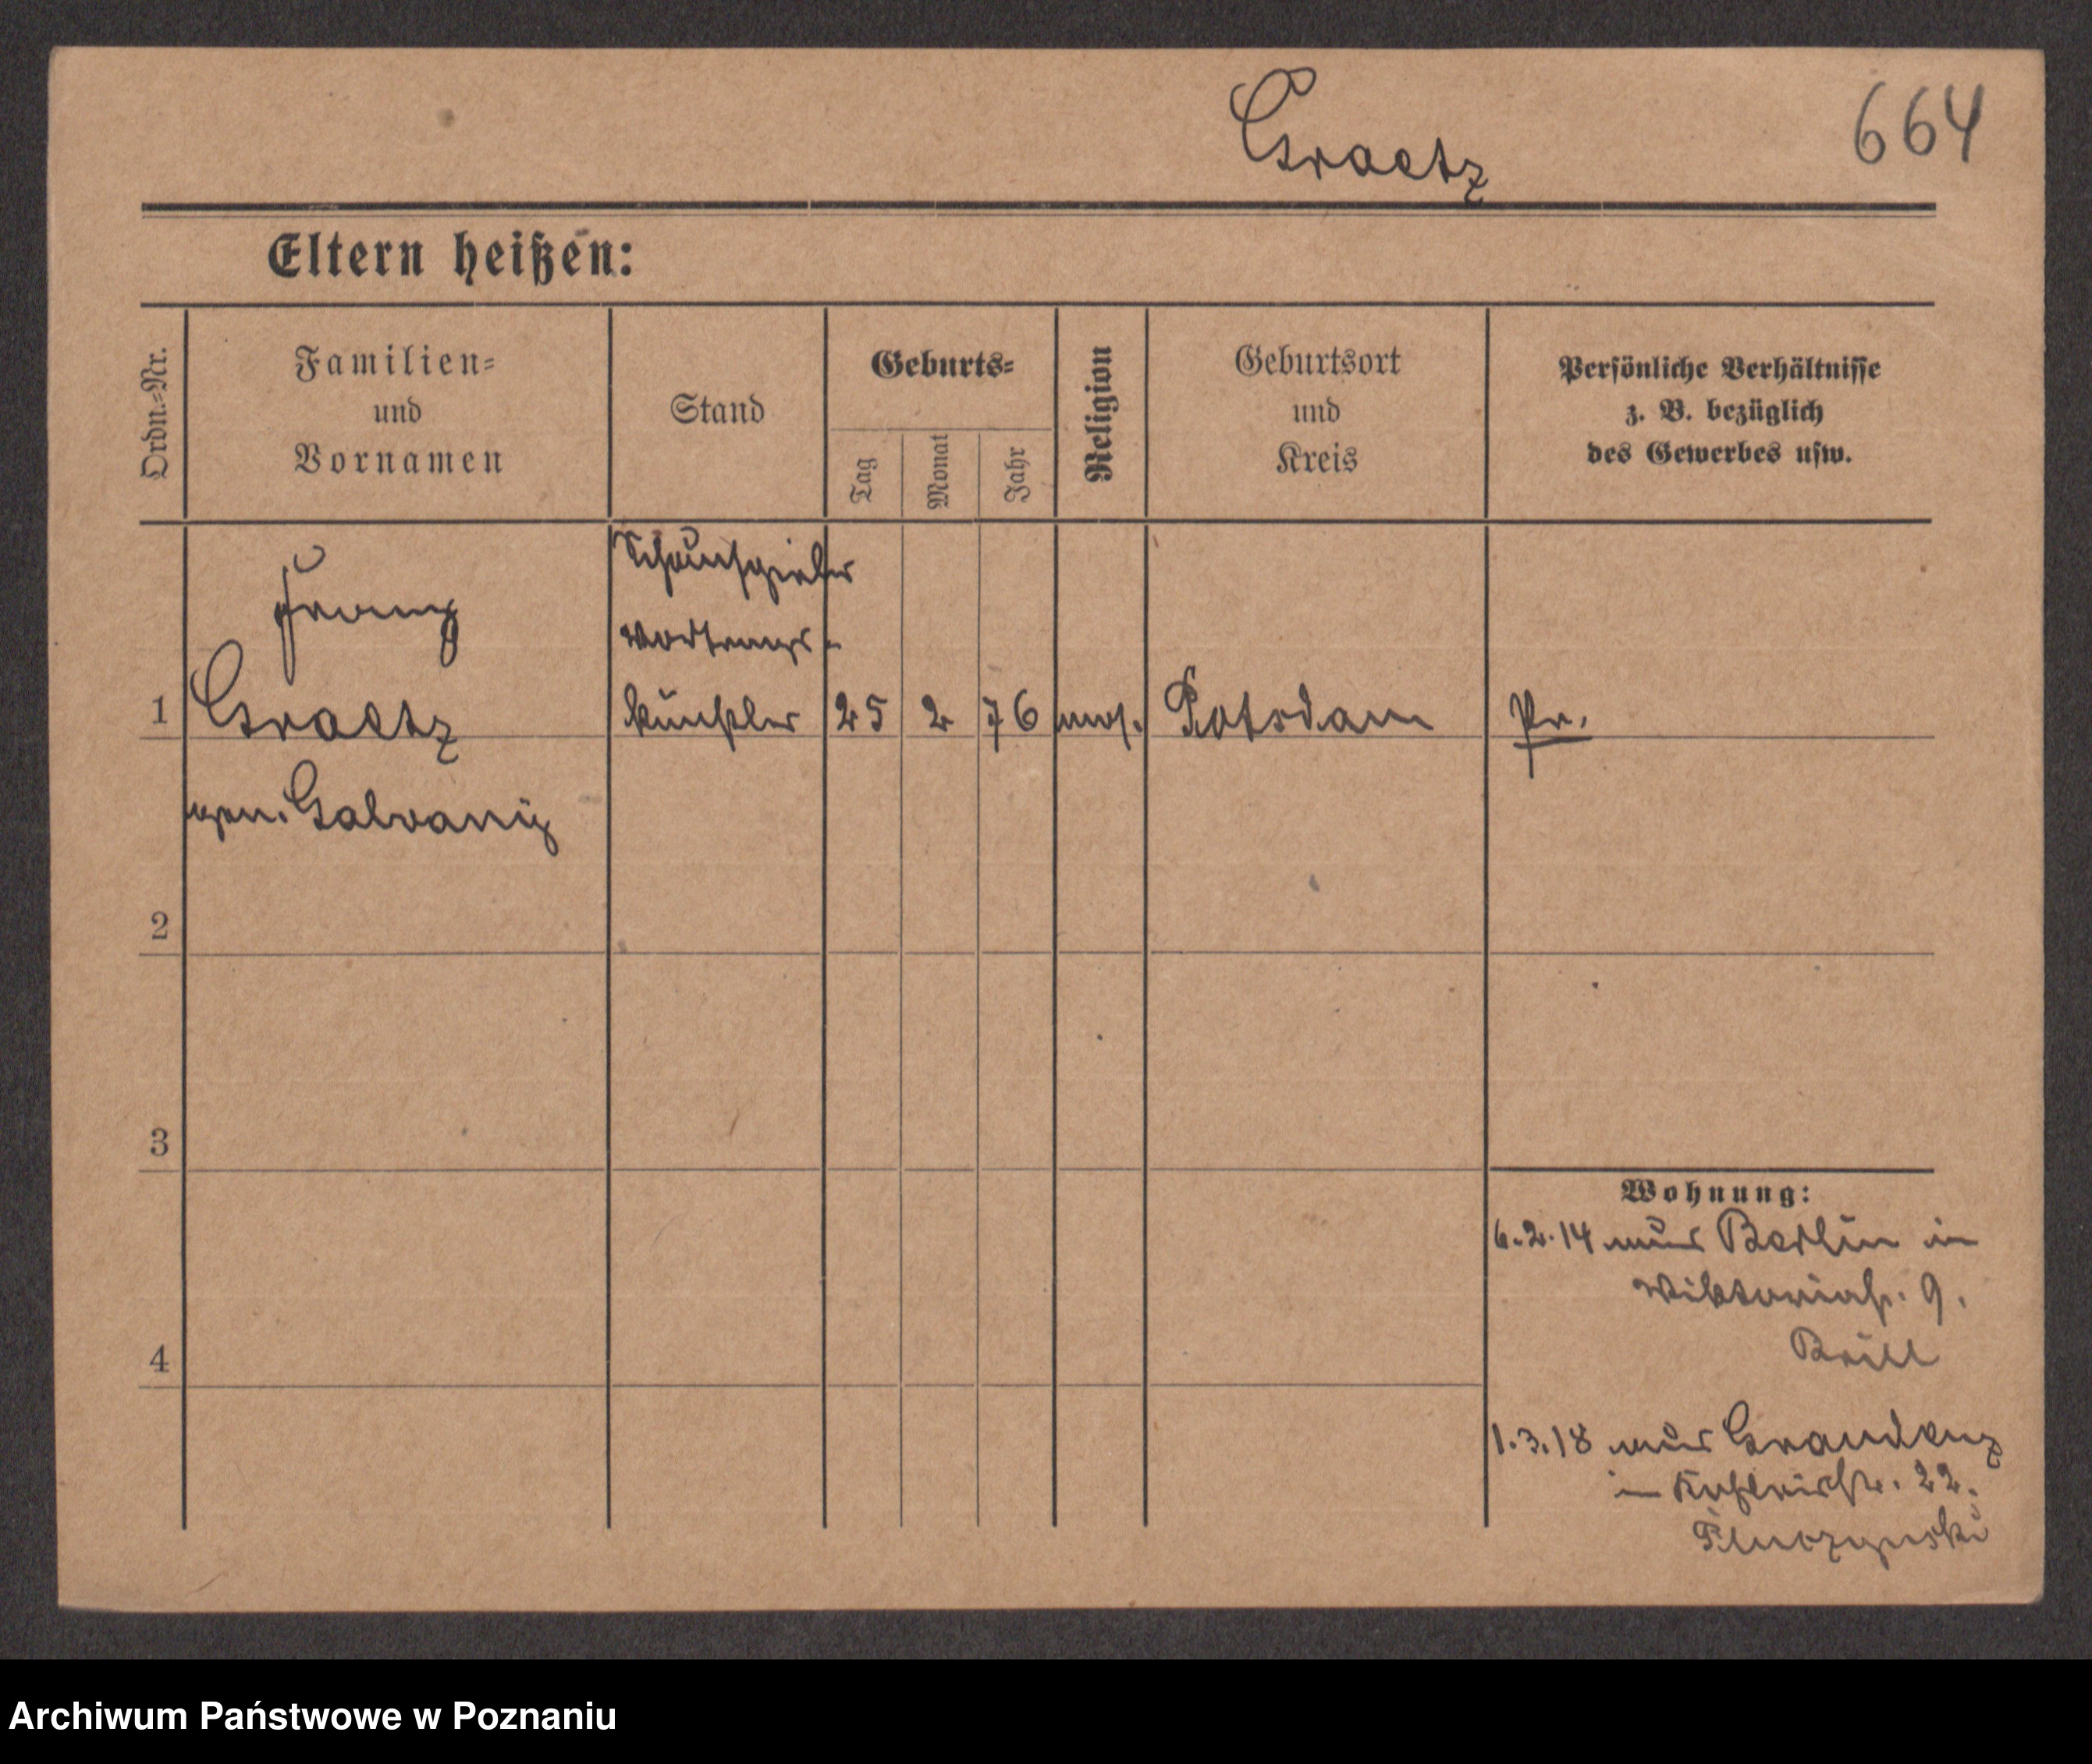 Graetz
664
Eltern heißen:
Ordn.-Nr.
Familien-
und
Vornamen
Stand
Geburts-
Tag
Monat
Jahr
Religion
Geburtsort
und
Kreis
Persönliche Verhältnisse
z. B. bezüglich
des Gewerbes usw.
Schauspieler
Franz
Vortrags-
1 Graetz künstler 25 2 76 mos. Potsdam Pr.
gen. Galvani
2
3
Wohnung:
6.2.14 aus Berlin in
Viktoriastr. 9.
Brill
4
1.3.18 aus Graudenz
in 22.
Archiwum Państwowe w Poznaniu